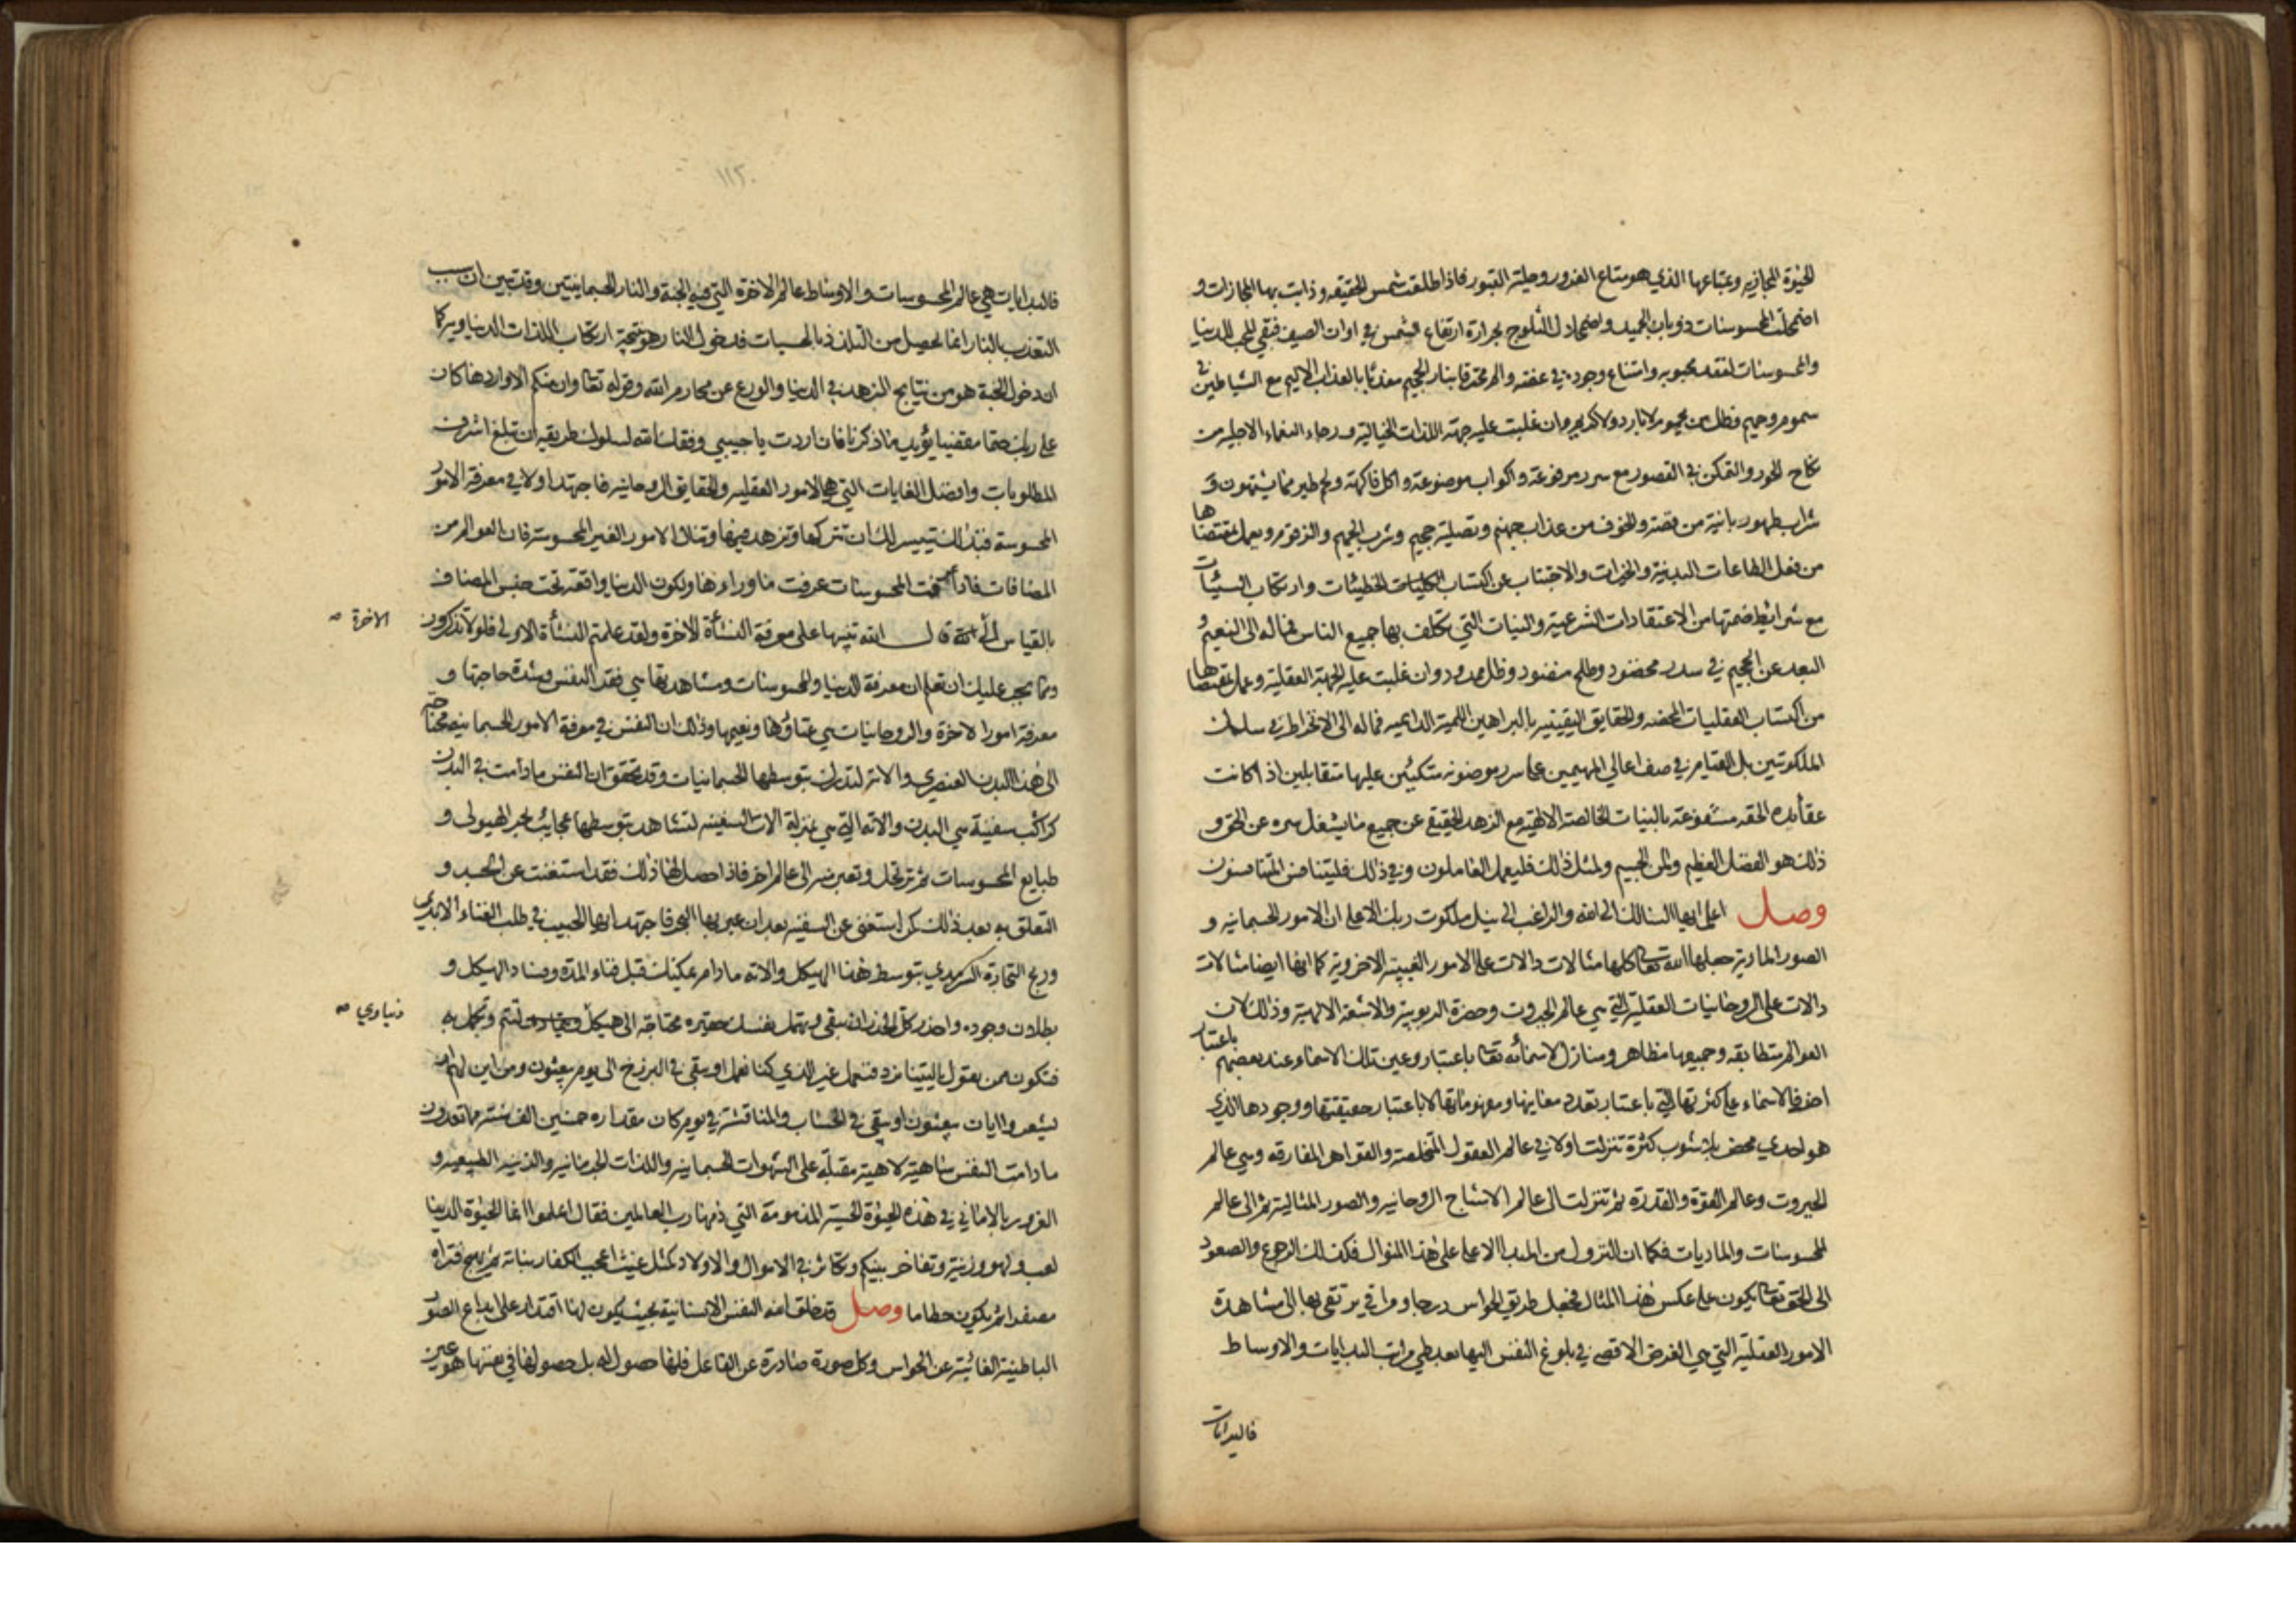 الحيوة المجازيه وعتباعها الذي هو متاع الغرور وحلية القبور فاذا طلعت شمس الحقيقه وذابت بها المجازات و
اضمحلت المحسوسات ذوبان الجميد واضمحلال الثلوج بحرارة ارتفاع الشمس في اوان الصيف فبقي المحب للدنيا
والمحسوسات لفقد محبوبه وامتناع وجوده في غصة والم محترقا بنار الجحيم معذبا بالعذاب الاليم مع الشياطين في
سموم وحميم وظل من يحموم لا بارد ولا كريم وان غلبت عليه جهة اللذات الخيالية ورجاء النعماء الاجليه من
نكاح الحور والتمكن في القصور مع سرر مرفوعة واكواب موضوعة واكل فاكهة ولحم طير مما يشتهون و
شراب طهور بانية من فضة والخوف من عذاب جهنم وتصلية جحيم وشرب الحميم والزقوم ويعمل بمقتضاها
من فعل الطاعات البدنية والخيرات والاجتناب عن اكتساب الخطيئات وارتكاب السيئات
مع شرائط ضمتها من الاعتقادات الشرعية والنيات التي تكلف بها جميع الناس فماله الى النعيم و
البعد عن الجحيم في سدر مخضود وطلح منضود وظل ممدود وان غلبت عليه الجهة العقلية وعمل بمقتضاها
من اكتساب العقليات المحضه والحقايق اليقينيه بالبراهين اللمية الدايميه فماله الى الانخراط في سلك
الملكوتيين بل القيام في صف اعالي المهيمين على سرر موضونه متكئين عليها متقابلين اذا كانت
عقائده الحقه مشفوعة بالنيات الخالصة الالهيه مع الزهد الحقيقي عن جميع ما يشغل سره عن الحق و
ذلك هو الفضل العظيم والمن الجسيم ولمثل ذلك فليعمل العاملون وفي ذلك فليتنافس المتنافسون
وصل اعلم ايها السالك الى الله والراغب الى نيل ملكوت ربك الاعلى ان الامور الجسمانيه و
الصور المادية جعلها الله تعالى كلها مثالات دالات على الامور الغيبية الاخروية كما انها ايضا مثالات
دالات على الروحانيات العقلية التي هي عالم الجبروت وحضرة الربوبية والاشعة الالهية وذلك لان
العوالم متطابقه وجميعها مظاهر ومنازل لاسمائه تعالى باعتبار وعين تلك الاسماء عند بعضهم باعتبار
اخر فالاسماء على كثرتها التي باعتبار تعدد معانيها ومفهوماتها لا باعتبار حقيقتها ووجودها الذي
هو احدي محض بلا شوب كثرة تنزلت اولا في عالم العقول المخلصة والقواهر المفارقه وهي عالم
الجبروت وعالم القوة والقدرة ثم تنزلت الى عالم الاشباح الروحانيه والصور المثالية ثم الى عالم
المحسوسات والماديات فكما ان النزول من المبدا الاعلى على هذا المنوال فكذلك الرجوع والصعود
الى الحق تعالى يكون على عكس هذا المثال فجعل طريق الحواس درجا ومراقي يرتقى بها الى مشاهدة
الامور العقلية التي هي الغرض الاقصى في بلوغ النفس اليها بعد طي مراتب البدايات والاوساط
فالبدايات
١١٢٠
فالبدايات هي عالم المحسوسات والاوساط عالم الاخرة التي فيه الجنة والنار الجسمانيتين وقد تبين ان سبب
التعذيب بالنار انما يحصل من التلذذ بالحسيات فدخول النار هو نتيجة ارتكاب اللذات الدنياويه كما
ان دخول الجنة هو من نتايج الزهد في الدنيا والورع عن محارم الله وقوله تعالى وان منكم الا واردها كان
على ربك حتما مقضيا يؤيد ما ذكرنا فان اردت يا حبيبي وفقك الله لسلوك طريقه ان تبلغ اشرف
المطلوبات وافضل الغايات التي هي الامور العقليه والحقايق الروحانيه فاجتهد اولا في معرفة الامور
المحسوسة فبذلك يتيسر لك ان تتركها وتزهد فيها وتنال الامور الغير المحسوسة فان العوالم من
المضافات فاذا المحسوسات عرفت ما وراءها ولكون الدنيا واقعة تحت جنس المضاف
بالقياس الى قال الله تنبيها على معرفة النشأة الاخرة ولقد علمتم النشأة الاولى فلولا تذكرون
الاخرة صه
ومما يجب عليك ان تعلم ان معرفة الدنيا والمحسوسات ومشاهدتها هي فقد النفس وشدة حاجتها و
معرفة امور الاخرة والروحانيات هي غناؤها ونعيمها وذلك ان النفس في معرفة الامور الجسمانيه محتاجة
الى هذا البدن العنصري والاته لتدرك بتوسطها الجسمانيات وقد تحقق ان النفس ما دامت في البدن
كراكب سفينة هي البدن والاته التي هي بمنزلة الات السفينه لتشاهد بتوسطها عجايب بحر الهيولى و
طبايع المحسوسات ثم ترتحل وتعبر منه الى عالم اخر فاذا حصل لها ذلك فقد استغنت عن الجسد و
التعلق به بعد ذلك كمن استغنى عن السفينه بعد ان عبر بها البحر فاجتهد ايها الحبيب في طلب الغناء الابدي
وربح التجارة السرمدي بتوسط هذا الهيكل والاته مادام يمكنك قبل فناء المدة وفساد الهيكل و
بطلان وجوده واحذر كل الحذر ان تبقى ويتهمل نفسك حقيره محتاجة الى هيكل لتتم وتكمل به
دنياوي صه
فتكون ممن يقول ياليتنا نرد فنعمل غير الذي كنا نعمل او تبقى في البرزخ الى يوم يبعثون ومن اين لهم ان
يشعروا ايان يبعثون او تبقى في الحساب والمناقشة في يوم كان مقداره خمسين الف سنة مما تعدون
ما دامت النفس ساهية لاهية مقبلة على الشهوات الجسمانيه واللذات الجرمانيه والزينه الطبيعيه و
الغرور بالاماني في هذه الحيوة الخسيسة المذمومة التي ذمها رب العالمين فقال اعلموا انما الحيوة الدنيا
لعب ولهو وزينة وتفاخر بينكم وتكاثر في الاموال والاولاد كمثل غيث اعجب الكفار نباته ثم يهيج فتراه
مصفرا ثم يكون حطاما وصل قد خلق الله النفس الانسانية بحيث يكون لها اقتدار على ابداع الصور
الباطنية الغائبة عن الحواس وكل صورة صادرة عن الفاعل فلها حصول له بل حصولها في نفسها هو عين